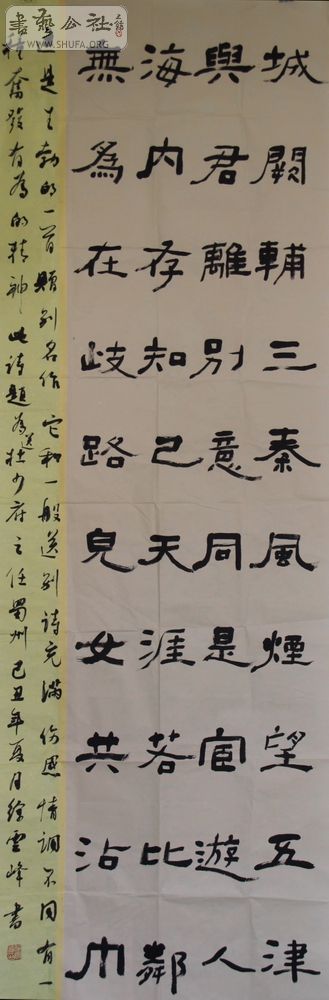 城闕輔三秦風煙望五津
與君離別意同是宦遊人
海內存知己天涯若比鄰
無為在歧路兒女共沾巾
是王勃的一首贈別名作它和一般送別詩充滿傷感情調不同有一
種奮發有為的精神此詩題為送杜少府之任蜀州己丑年夏月徐雲峰書
書藝公社
WWW.SHUFA.ORG